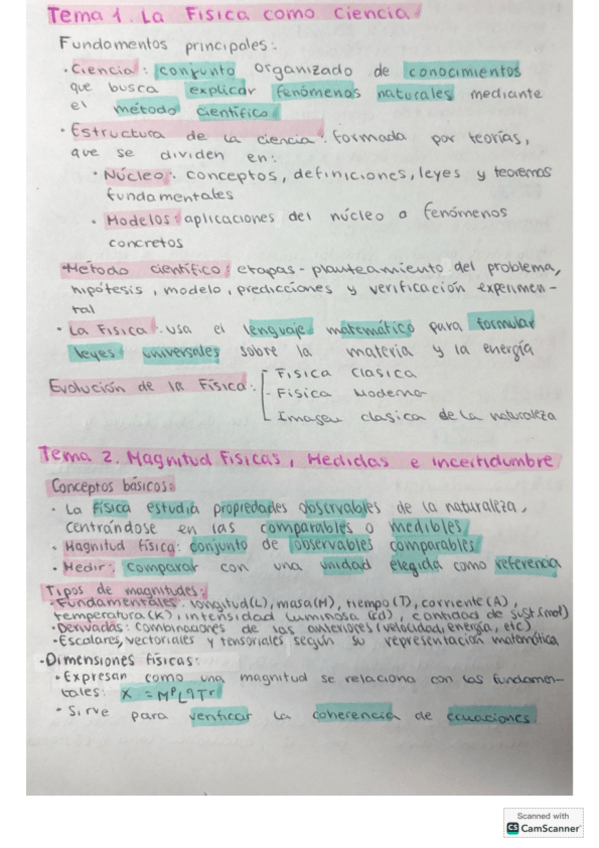 Tema 1. La Fisica como Ciencia
Fundamentos principales:
· Ciencia: conjunto organizado de conocimientos
que busca explicar fenómenos naturales mediante
el método científico
· Estructura de la ciencia: formada por teorías,
que se dividen en:
· Núcleo: conceptos, definiciones, leyes y teoremas
fundamentales
· Modelos: aplicaciones del núcleo a fenómenos
concretos
· Método científico: etapas - planteamiento del problema,
hipótesis, modelo, predicciones y verificación experimen-
tal
· La Física: usa el lenguaje matemático para formular
leyes universales sobre la materia y la energía
Evolución de la Física:
- Física Clasica
- Física Moderna
- Imagen clasica de la naturaleza
Tema 2. Magnitud Físicas, Medidas e incertidumbre
Conceptos básicos:
· La física estudia propiedades observables de la naturaleza,
centrándose en las comparables o medibles
· Magnitud física: conjunto de observables comparables
· Medir: comparar con una unidad elegida como referencia
Tipos de magnitudes:
· Fundamentales: longitud(L), masa(M), tiempo(T), corriente(A),
temperatura(K), intensidad luminosa (cd), cantidad de sust.(mol)
· Derivadas: combinaciones de las anteriores (velocidad, energía, etc)
· Escalares, vectoriales y tensoriales según su representación matemática
· Dimensiones físicas:
· Expresan como una magnitud se relaciona con las fundamen-
tales: X = MᵖL𐞥Tʳ
· Sirve para verificar la coherencia de ecuaciones
Scanned with
CS CamScanner